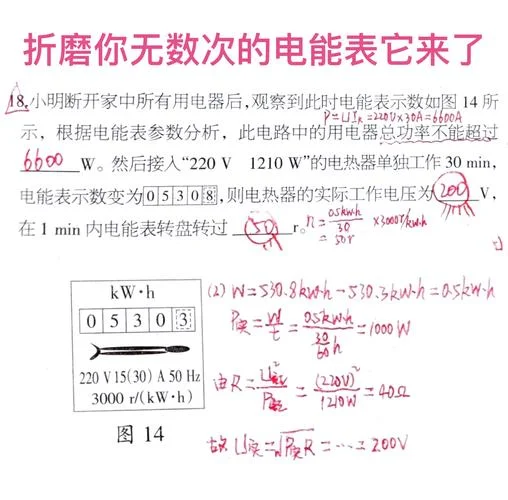 折磨你无数次的电能表它来了
18.小明断开家中所有用电器后,观察到此时电能表示数如图 14 所
P=UI_R=220V×30A=6600A
示，根据电能表参数分析，此电路中的用电器总功率不能超过
6600 W。然后接入“220 V 1210 W”的电热器单独工作 30 min,
电能表示数变为05308,则电热器的实际工作电压为 200 V,
在 1 min 内电能表转盘转过 50 r。
n=0.5kw·h/30 ×3000r/kw·h
=50r
kW·h
0 5 3 0 3
220 V 15(30) A 50 Hz
3000 r/(kW·h)
图 14
(2) W=530.8kw·h-530.3kw·h=0.5kw·h
P实=W/t=0.5kw·h/(30/60 h)=1000W
由R=U额²/P额=(220V)²/1210W=40Ω
故U实=√P实R=…=200V